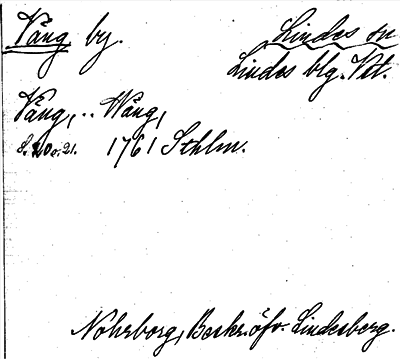 Vång by.
Lindes sn
Lindes blg. Vstt.
Vång, .. Wång,
s. 20 o. 21. 1761 Sthlm.
Nohrborg, Beskr. öfv. Lindesberg.